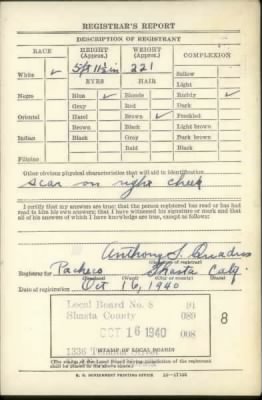 REGISTRAR'S REPORT
DESCRIPTION OF REGISTRANT
RACE
HEIGHT (Approx.)
WEIGHT (Approx.)
COMPLEXION
White ✓
5 ft 11½ in
221
Sallow
EYES
HAIR
Light
Negro
Blue ✓
Blonde
Ruddy ✓
Gray
Red
Dark
Oriental
Hazel
Brown ✓
Freckled
Brown
Black
Light brown
Indian
Black
Gray
Dark brown
Bald
Black
Filipino
Other obvious physical characteristics that will aid in identification
scar on right cheek
I certify that my answers are true; that the person registered has read or has had read to him his own answers; that I have witnessed his signature or mark and that all of his answers of which I have knowledge are true, except as follows:
Anthony S. Quadros
Registrar for Pacheco Shasta Calif.
Date of registration Oct 16, 1940
Local Board No. 8 91
Shasta County 089
OCT 16 1940 008
8
1336
STAMP OF LOCAL BOARD
(The stamp of the Local Board having jurisdiction of the registrant shall be placed in the above space.)
U. S. GOVERNMENT PRINTING OFFICE